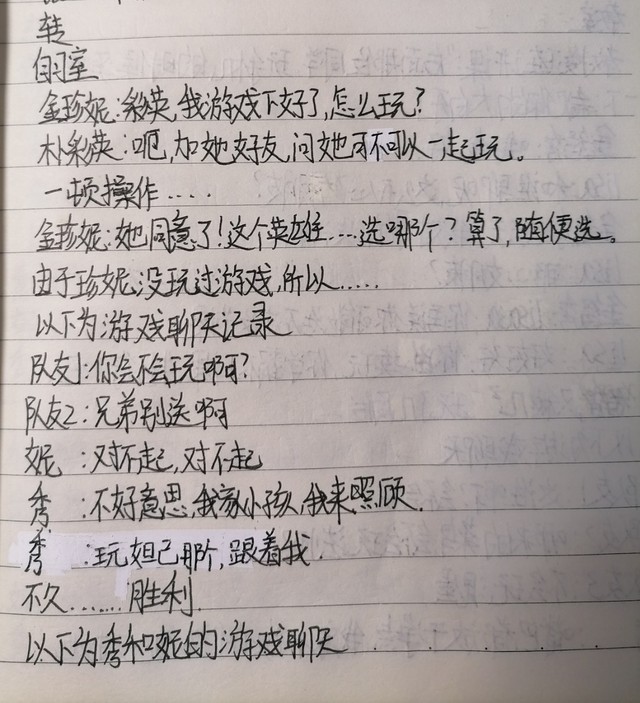 转
自习室
金珍妮:彩英,我游戏下好了,怎么玩?
朴彩英:呃,加她好友,问她可不可以一起玩。
一顿操作....
金珍妮:她同意了!这个英雄....选哪个?算了,随便选。
由于珍妮没玩过游戏,所以.....
以下为游戏聊天记录
队友1:你会不会玩啊?
队友2:兄弟别送啊
妮:对不起,对不起
秀:不好意思,我家小孩,我来照顾.
秀:玩妲己那个,跟着我.
不久......胜利.
以下为秀和妮的游戏聊天